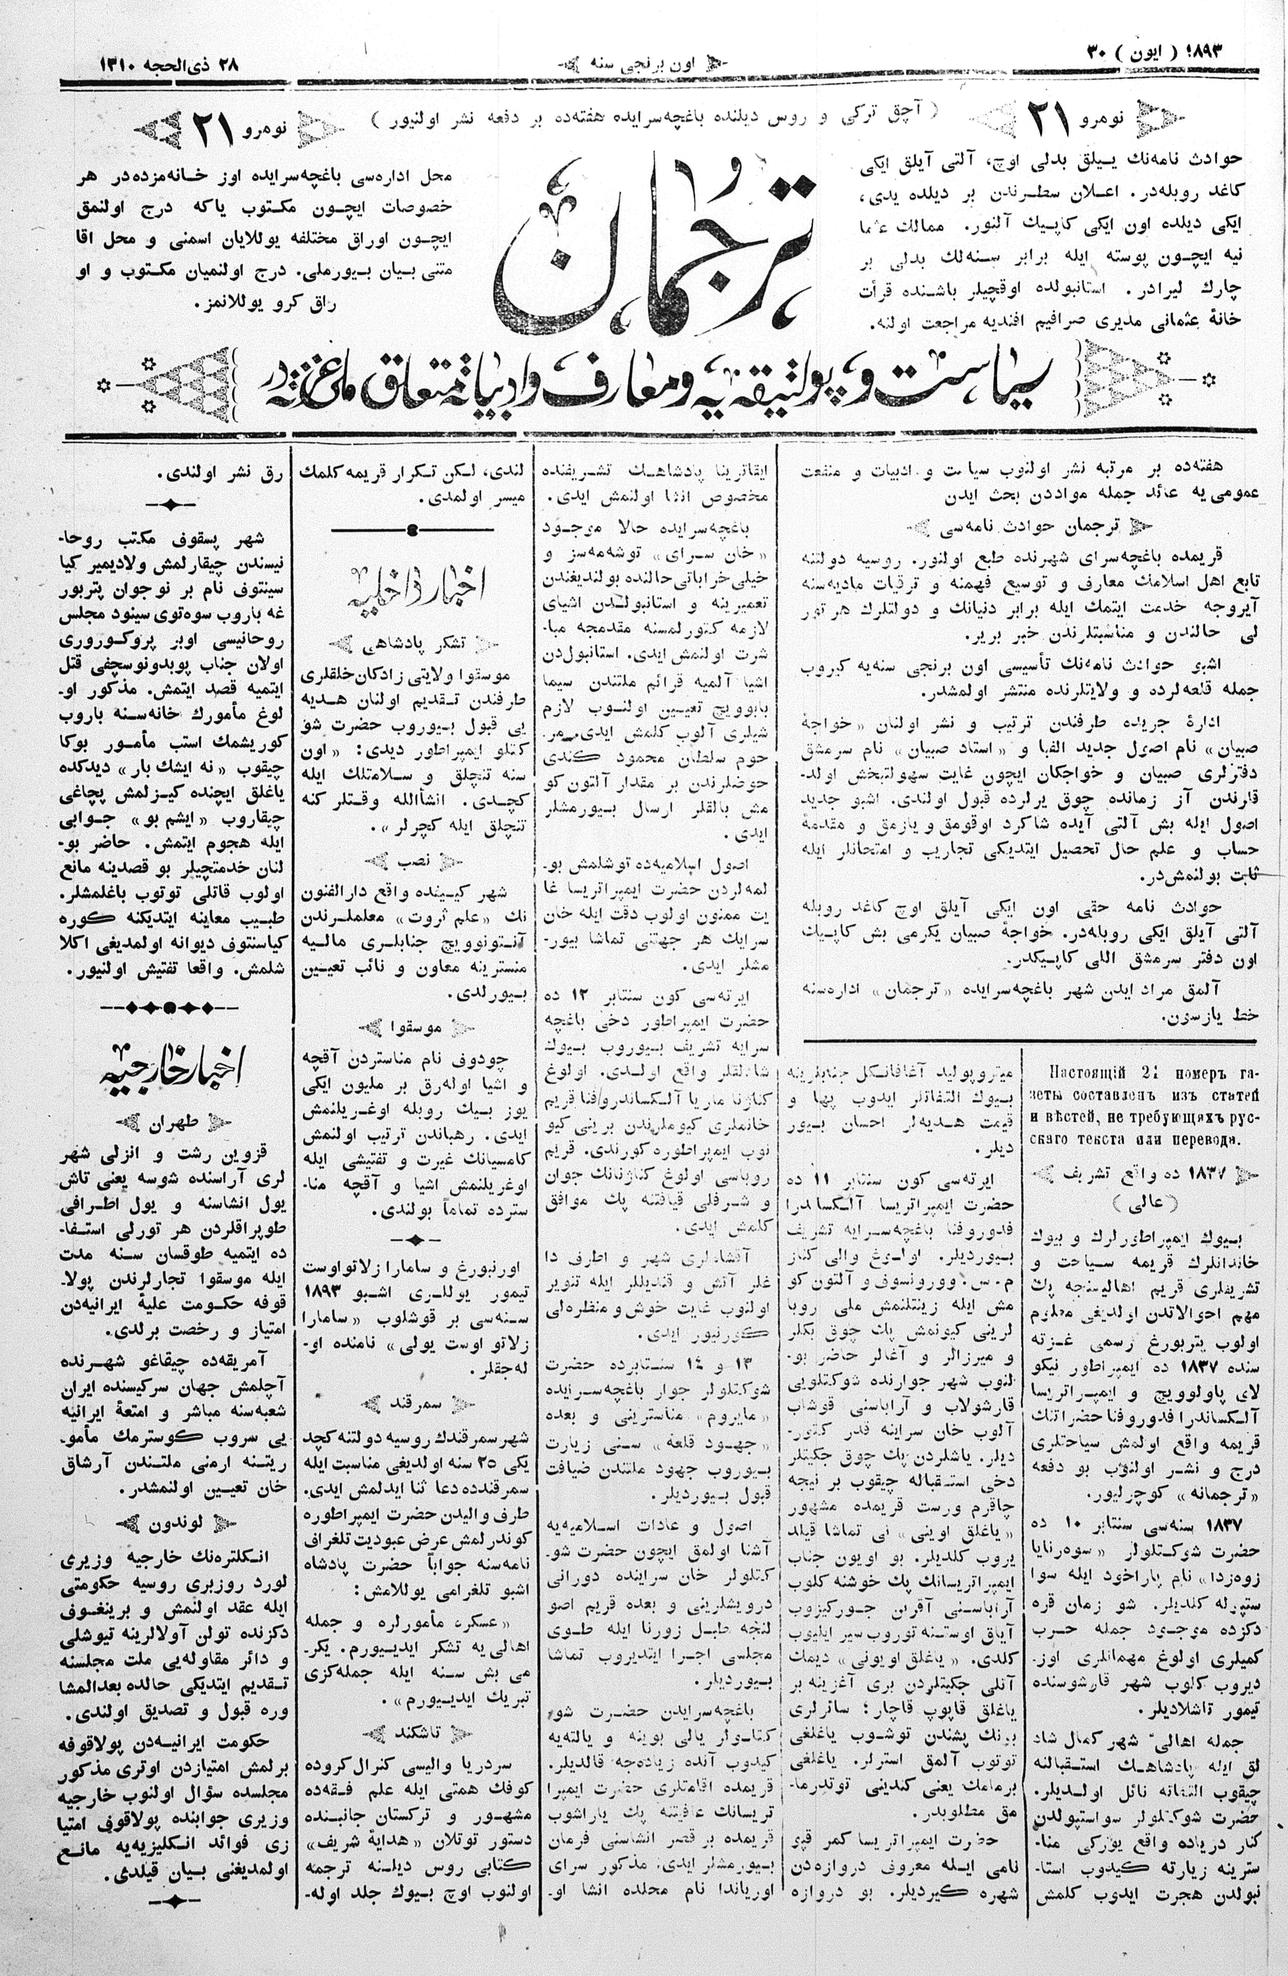 ۱۸۹۳ ( ايون ) ۳۰
اون برنجى سنه
۲۸ ذى‌الحجه ۱۳۱۰
نومرو ۲۱
( آچق تركى و روس ديلنده باغچه‌سرايده هفته‌ده بر دفعه نشر اولنيور )
نومرو ۲۱
حوادث نامه‌نك ييلق بدلى اوچ، آلتى آيلق ايكى
كاغد روبله‌در. اعلان سطرندن بر ديلده يدى،
ايكى ديلده اون ايكى كاپيك آلنور. ممالك عثما
نيه ايچون پوسته ايله برابر سنه‌لك بدلى بر
چارك ليرادر. استانبولده اوقچيلر باشنده قرأت
خانهٔ عثمانى مديرى صرافيم افنديه مراجعت اولنه.
ترجمان
محل اداره‌سى باغچه‌سرايده اوز خانه‌مزده‌در هر
خصوصات ايچون مكتوب ياكه درج اولنمق
ايچون اوراق مختلفه يوللايان اسمنى و محل اقا
متنى بيان بيورملى. درج اولنميان مكتوب و او
راق كرو يوللانمز.
سياست و پولتيقه‌يه و معارف و ادبياته متعلق ملى غزته‌در
هفته‌ده بر مرتبه نشر اولنوب سياست و ادبيات و منفعت
عموميه عائد جمله مواددن بحث ايدن
ترجمان حوادث نامه‌سى
قريمده باغچه‌سراى شهرنده طبع اولنور. روسيه دولتنه
تابع اهل اسلامك معارف و توسيع فهمنه و ترقيات ماديه‌سنه
آيروجه خدمت ايتمك ايله برابر دنيانك و دولتلرك هر تور
لى حالندن و مناسبتلرندن خبر برير.
اشبو حوادث نامه‌نك تأسيسى اون برنجى سنه‌يه كيروب
جمله قلعه‌لرده و ولايتلرنده منتشر اولمشدر.
ادارهٔ جريده طرفندن ترتيب و نشر اولنان «خواجهٔ
صبيان» نام اصول جديد الفبا و «استاد صبيان» نام سرمشق
دفترلرى صبيان و خواجكان ايچون غايت سهولتبخش اولد-
قلرندن آز زمانده چوق يرلرده قبول اولندى. اشبو جديد
اصول ايله بش آلتى آيده شاكرد اوقومق و يازمق و مقدمهٔ
حساب و علم حال تحصيل ايتديكى تجاريب و امتحانلر ايله
ثابت بولنمش‌در.
حوادث نامه حقى اون ايكى آيلق اوچ كاغد روبله
آلتى آيلق ايكى روبله‌در. خواجهٔ صبيان يكرمى بش كاپيك
اون دفتر سرمشق اللى كاپيكدر.
آلمق مراد ايدن شهر باغچه‌سرايده «ترجمان» اداره‌سنه
خط يازسون.
Настоящій 21 номеръ га-
зеты составленъ изъ статей
и вѣстей, не требующихъ рус-
скаго текста или перевода.
۱۸۳۷ ده واقع تشريف
(عالى)
بيوك ايمپراطورلرك و بيوك
خاندانلرك قريمه سياحت و
تشريفلرى قريم اهاليسنجه پك
مهم احوالاتدن اولديغى معلوم
اولوب پتربورغ رسمى غزته
سنده ۱۸۳۷ ده ايمپراطور نيكو
لاى پاولوويچ و ايمپراتريسا
آلكساندرا فدوروفنا حضراتنك
قريمه واقع اولمش سياحتلرى
درج و نشر اولنوب بو دفعه
«ترجمانه» كوچرليور.
۱۸۳۷ سنه‌سى سنتابر ۱۰ ده
حضرت شوكتلولر «سوه‌رنايا
زوه‌زدا» نام پاراخود ايله سوا
ستپوله كلديلر. شو زمان قره
دكزده موجود جمله حرب
كميلرى اولوغ مهمانلرى اوز-
ديروب كلوب شهر قارشوسنده
تيمور تاشلاديلر.
جمله اهالئ شهر كمال شاد
لق ايله پادشاهك استقبالنه
چيقوب التفاته نائل اولديلر.
حضرت شوكتلولر سواستپولدن
كنار درياده واقع يورکى منا-
سترينه زيارته كيدوب استا-
نبولدن هجرت ايدوب كلمش
ميتروپوليد آغافانكل جنابلرينه
بيوك التفاتلر ايدوب پها و
قيمت هديه‌لر احسان بيور
ديلر.
ايرته‌سى كون سنتابر ۱۱ ده
حضرت ايمپراتريسا آلكساندرا
فدوروفنا باغچه‌سرايه تشريف
بيورديلر. اولوغ والى كناز
م.س. وورونسوف و آلتون كو
مش ايله زينتلنمش ملى روبا
لرينى كيونمش پك چوق بكلر
و ميرزالر و آغالر حاضر بو-
لنوب شهر جوارنده شوكتلويى
قارشولاب و آراباسنى قوشاب
آلوب خان سراينه قدر كتور-
ديلر. ياشلردن پك چوق جكيتلر
دخى استقباله چيقوب بر نيچه
چاقرم ورست قريمده مشهور
«ياغلق اوينى» نى تماشا قيلد
يروب كلديلر. بو اويون جناب
ايمپراتريسانك پك خوشنه كلوب
آراباسنى آقرين جوركيزوب
آياق اوستنه توروب سير ايليوب
كلدى. «ياغلق اويونى» ديمك
آتلى جكيتلردن برى آغزينه بر
ياغلق قاپوپ قاچار؛ سائرلرى
بونك پشندن توشوب ياغلغى
توتوب آلمق استرلر. ياغلغى
برمامك يعنى كندينى توتدرما-
مق مطلوبدر.
حضرت ايمپراتريسا كمر قپو
نامى ايله معروف دروازه‌دن
شهره كيرديلر. بو دروازه
ايقاترينا پادشاهك تشريفنده
مخصوص انشا اولنمش ايدى.
باغچه‌سرايده حالا موجود
«خان سراى» توشه‌مه‌سز و
خيلى خراباتى حالنده بولنديغندن
تعميرينه و استانبولدن اشياى
لازمه كتورلمسنه مقدمجه مبا-
شرت اولنمش ايدى. استانبول‌دن
اشيا آلميه قرائم ملتندن سيما
بابوويچ تعيين اولنوب لازم
شيلرى آلوب كلمش ايدى. مر-
حوم سلطان محمود كندى
حوضلرندن بر مقدار آلتون كو
مش بالقلر ارسال بيورمشلر
ايدى.
اصول اسلاميه‌ده توشلمش بو-
لمه‌لردن حضرت ايمپراتريسا غا
يت ممنون اولوب دقت ايله خان
سرايك هر جهتنى تماشا بيور-
مشلر ايدى.
ايرته‌سى كون سنتابر ۱۲ ده
حضرت ايمپراطور دخى باغچه
سرايه تشريف بيوروب بيوك
شادلقلر واقع اولدى. اولوغ
كنازنا ماريا آلكساندروافنا قريم
خانملرى كيوملرندن برينى كيو
نوب ايمپراطوره كورندى. قريم
روباسى اولوغ كنازنانك جوان
و شرفلى قيافتنه پك موافق
كلمش ايدى.
آقشاملرى شهر و اطرف دا
غلر آتش و قنديللر ايله تنوير
اولنوب غايت خوش و منظره‌لى
كورنيور ايدى.
۱۳ و ۱۴ سنتابرده حضرت
شوكتلولر جوار باغچه‌سرايده
«مايروم» مناسترينى و بعده
«جهود قلعه» سنى زيارت
بيوروب جهود ملتندن ضيافت
قبول بيورديلر.
اصول و عادات اسلاميه‌يه
آشنا اولمق ايچون حضرت شو-
كتلولر خان سراينده دورانى
درويشلرينى و بعده قريم اصو
لنجه طبل زورنا ايله طوى
مجلسى اجرا ايتديروب تماشا
بيورديلر.
باغچه‌سرايدن حضرت شو
كتلولر يالى بوينه و يالته‌يه
كيدوب آنده زياده‌جه قالديلر.
قريمده اقامتلرى حضرت ايمپرا
تريسانك عافيتنه پك ياراشوب
قريمده بر قصر انشاسنى فرمان
بيورمشلر ايدى؛ مذكور سراى
اورياندا نام محلده انشا او-
لندى، لكن تكرار قريمه كلمك
ميسر اولمدى.
اخبار داخليه
تشكر پادشاهى
موسقوا ولايتى زادكان‌خلقلرى
طرفندن تقديم اولنان هديه
يى قبول بيوروب حضرت شو
كتلو ايمپراطور ديدى: «اون
سنه تنچلق و سلامتلك ايله
كچدى. انشأالله وقتلر كنه
تنچلق ايله كچرلر».
نصب
شهر كيفده واقع دارالفنون
نك «علم ثروت» معلملرندن
آنتونوويچ جنابلرى ماليه
منسترينه معاون و نائب تعيين
بيورلدى.
موسقوا
چودوف نام مناستردن آقچه
و اشيا اوله‌رق بر مليون ايكى
يوز بيك روبله اوغريلنمش
ايدى. رهباندن ترتيب اولنمش
كامسيانك غيرت و تفتيشى ايله
اوغريلنمش اشيا و آقچه منا-
سترده تماماً بولندى.
اورنبورغ و سامارا زلاتواوست
تيمور يوللرى اشبو ۱۸۹۳
سنه‌سى بر قوشلوب «سامارا
زلاتو اوست يولى» نامنده او-
له‌جقلر.
سمرقند
شهر سمرقندك روسيه دولتنه كچد
يكى ۲۵ سنه اولديغى مناسبت ايله
سمرقندده دعا ثنا ايدلمش ايدى.
طرف واليدن حضرت ايمپراطوره
كوندرلمش عرض عبوديت تلغراف
نامه‌سنه جواباً حضرت پادشاه
اشبو تلغرامى يوللامش:
«عسكره مأمورلره و جمله
اهالى‌يه تشكر ايديورم. يكر-
مى بش سنه ايله جمله‌كزى
تبريك ايديورم».
تاشكند
سردريا واليسى كنرال كروده
كوفك همتى ايله علم فقه‌ده
مشهور و تركستان جانبنده
دستور توتلان «هدايهٔ شريف»
كتابى روس ديلنه ترجمه
اولنوب اوچ بيوك جلد اوله-
رق نشر اولندى.
شهر پسقوف مكتب روحا-
نيسندن چيقارلمش ولاديمير كيا
سينتوف نام بر نوجوان پتربور
غه باروب سوه‌توى سينود مجلس
روحانيسى اوبر پروكورورى
اولان جناب پوبدونوسچفى قتل
ايتميه قصد ايتمش. مذكور او-
لوغ مأمورك خانه‌سنه باروب
كوريشمك استب مأمور بوكا
چيقوب «نه ايشك بار» ديدكده
ياغلق ايچنده كيزلمش پچاغى
چيقاروب «ايشم بو» جوابى
ايله هجوم ايتمش. حاضر بو-
لنان خدمتچيلر بو قصدينه مانع
اولوب قاتلى توتوب باغلمشلر.
طبيب معاينه ايتديكنه كوره
كياستنوف ديوانه اولمديغى آكلا
شلمش. واقعا تفتيش اولنيور.
اخبار خارجيه
طهران
قزوين رشت و انزلى شهر
لرى آراسنده شوسه يعنى تاش
يول انشاسنه و يول اطرافى
طوپراقلردن هر تورلى استفا-
ده ايتميه طوقسان سنه مدت
ايله موسقوا تجارلرندن پولا-
قوفه حكومت عليهٔ ايرانيه‌دن
امتياز و رخصت برلدى.
آمريقه‌ده چيقاغو شهرنده
آچلمش جهان سركيسنده ايران
شعبه‌سنه مباشر و امتعهٔ ايرانيه
يى سروب كوسترمك مأمو-
ريتنه ارمنى ملتندن آرشاق
خان تعيين اولنمشدر.
لوندون
انكلتره‌نك خارجيه وزيرى
لورد روزبرى روسيه حكومتى
ايله عقد اولنمش و برينغوف
دكزنده تولن آولالرينه تيوشلى
و دائر مقاوله‌يى ملت مجلسنه
تقديم ايتديكى حالده بعدالمشا
وره قبول و تصديق اولندى.
حكومت ايرانيه‌دن پولاقوفه
برلمش امتيازدن اوترى مذكور
مجلسده سؤال اولنوب خارجيه
وزيرى جوابنده پولاقوف امتيا
زى فوائد انكليزيه‌يه مانع
اولمديغنى بيان قيلدى.